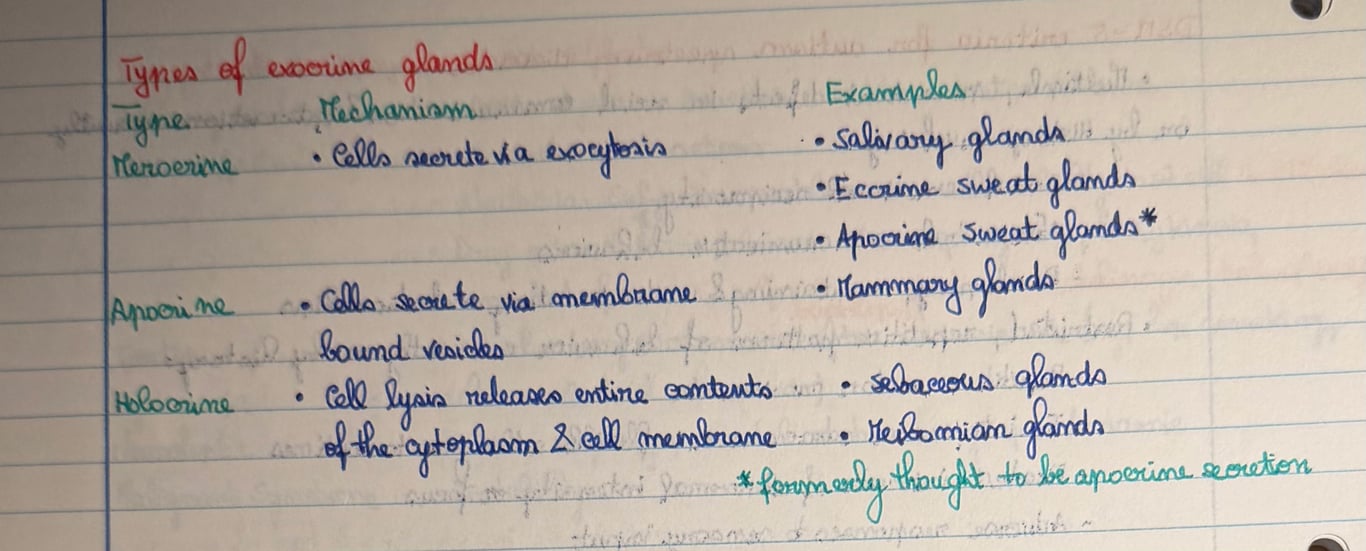 Types of exocrine glands
Type Mechanism Examples
Merocrine • Cells secrete via exocytosis • Salivary glands
• Eccrine sweat glands
• Apocrine sweat glands*
Apocrine • Cells secrete via membrane • Mammary glands
bound vesicles
Holocrine • Cell lysis releases entire contents • sebaceous glands
of the cytoplasm & cell membrane • Meibomian glands
*formerly thought to be apocrine secretion